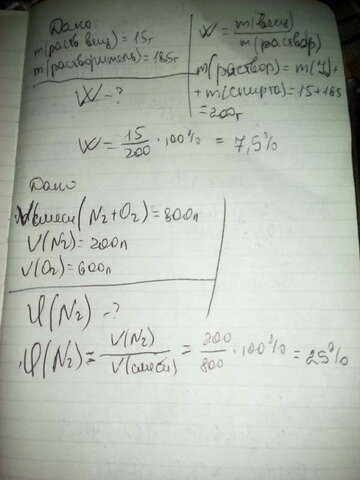 Дано
m(раств вещ) = 15г
m(растворитель) = 185г
W - ?
W = m(вещ) / m(раствор)
m(раствор) = m(I₂) +
+ m(спирта) = 15 + 185
= 200г
W = 15/200 · 100% = 7,5%
Дано
Vсмеси(N₂+O₂) = 800л
V(N₂) = 200л
V(O₂) = 600л
φ(N₂) - ?
φ(N₂) = V(N₂)/V(смеси) = 200/800 · 100% = 25%